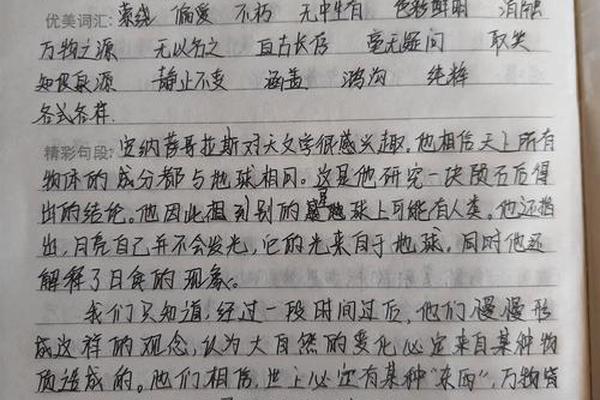 优美词汇: 萦绕 偏爱 不朽 无中生有 色彩鲜明 消融
万物之源 无以名之 亘古长存 毫无疑问 取笑
知识泉源 静止不变 涵盖 鸿沟 纯粹
各式各样.
精彩句段: 安纳萨哥拉斯对天文学很感兴趣,他相信天上所有
物体的成分都与地球相同。这是他研究一块陨石后得
出的结论。他因此想到别的星球上可能有人类。他还指
出,月亮自己并不会发光,它的光来自于地球,同时他还
解释了日食的现象。
我们只知道,经过一段时间过后,他们慢慢形
成这样的观念,认为大自然的变化必定来自某种物
质造成的。他们相信,世上必定有某种“东西”,万物皆